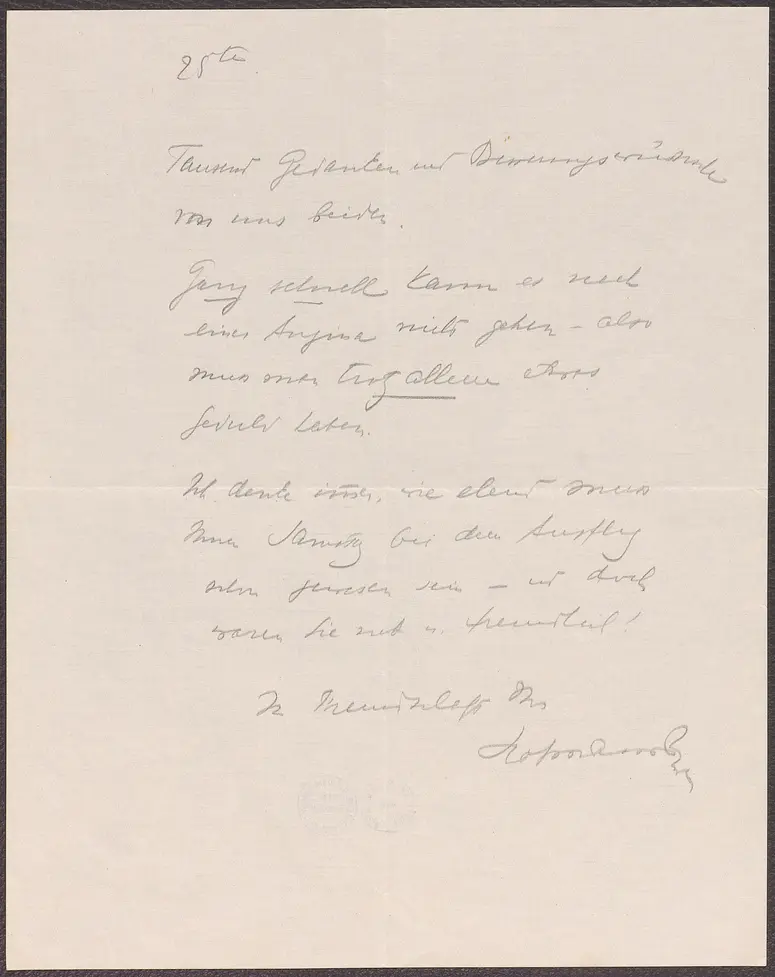 25te
Tausend Gedanken und Besserungswünsche
von uns beiden.
Ganz schnell kann es nach
einer Angina nicht gehen – also
muss man trotz allem etwas
Geduld haben.
Ich denke immer, wie elend muss
Ihnen Samstag bei dem Ausflug
schon gewesen sein – und doch
waren Sie nett u. freundlich!
In Freundschaft Ihr